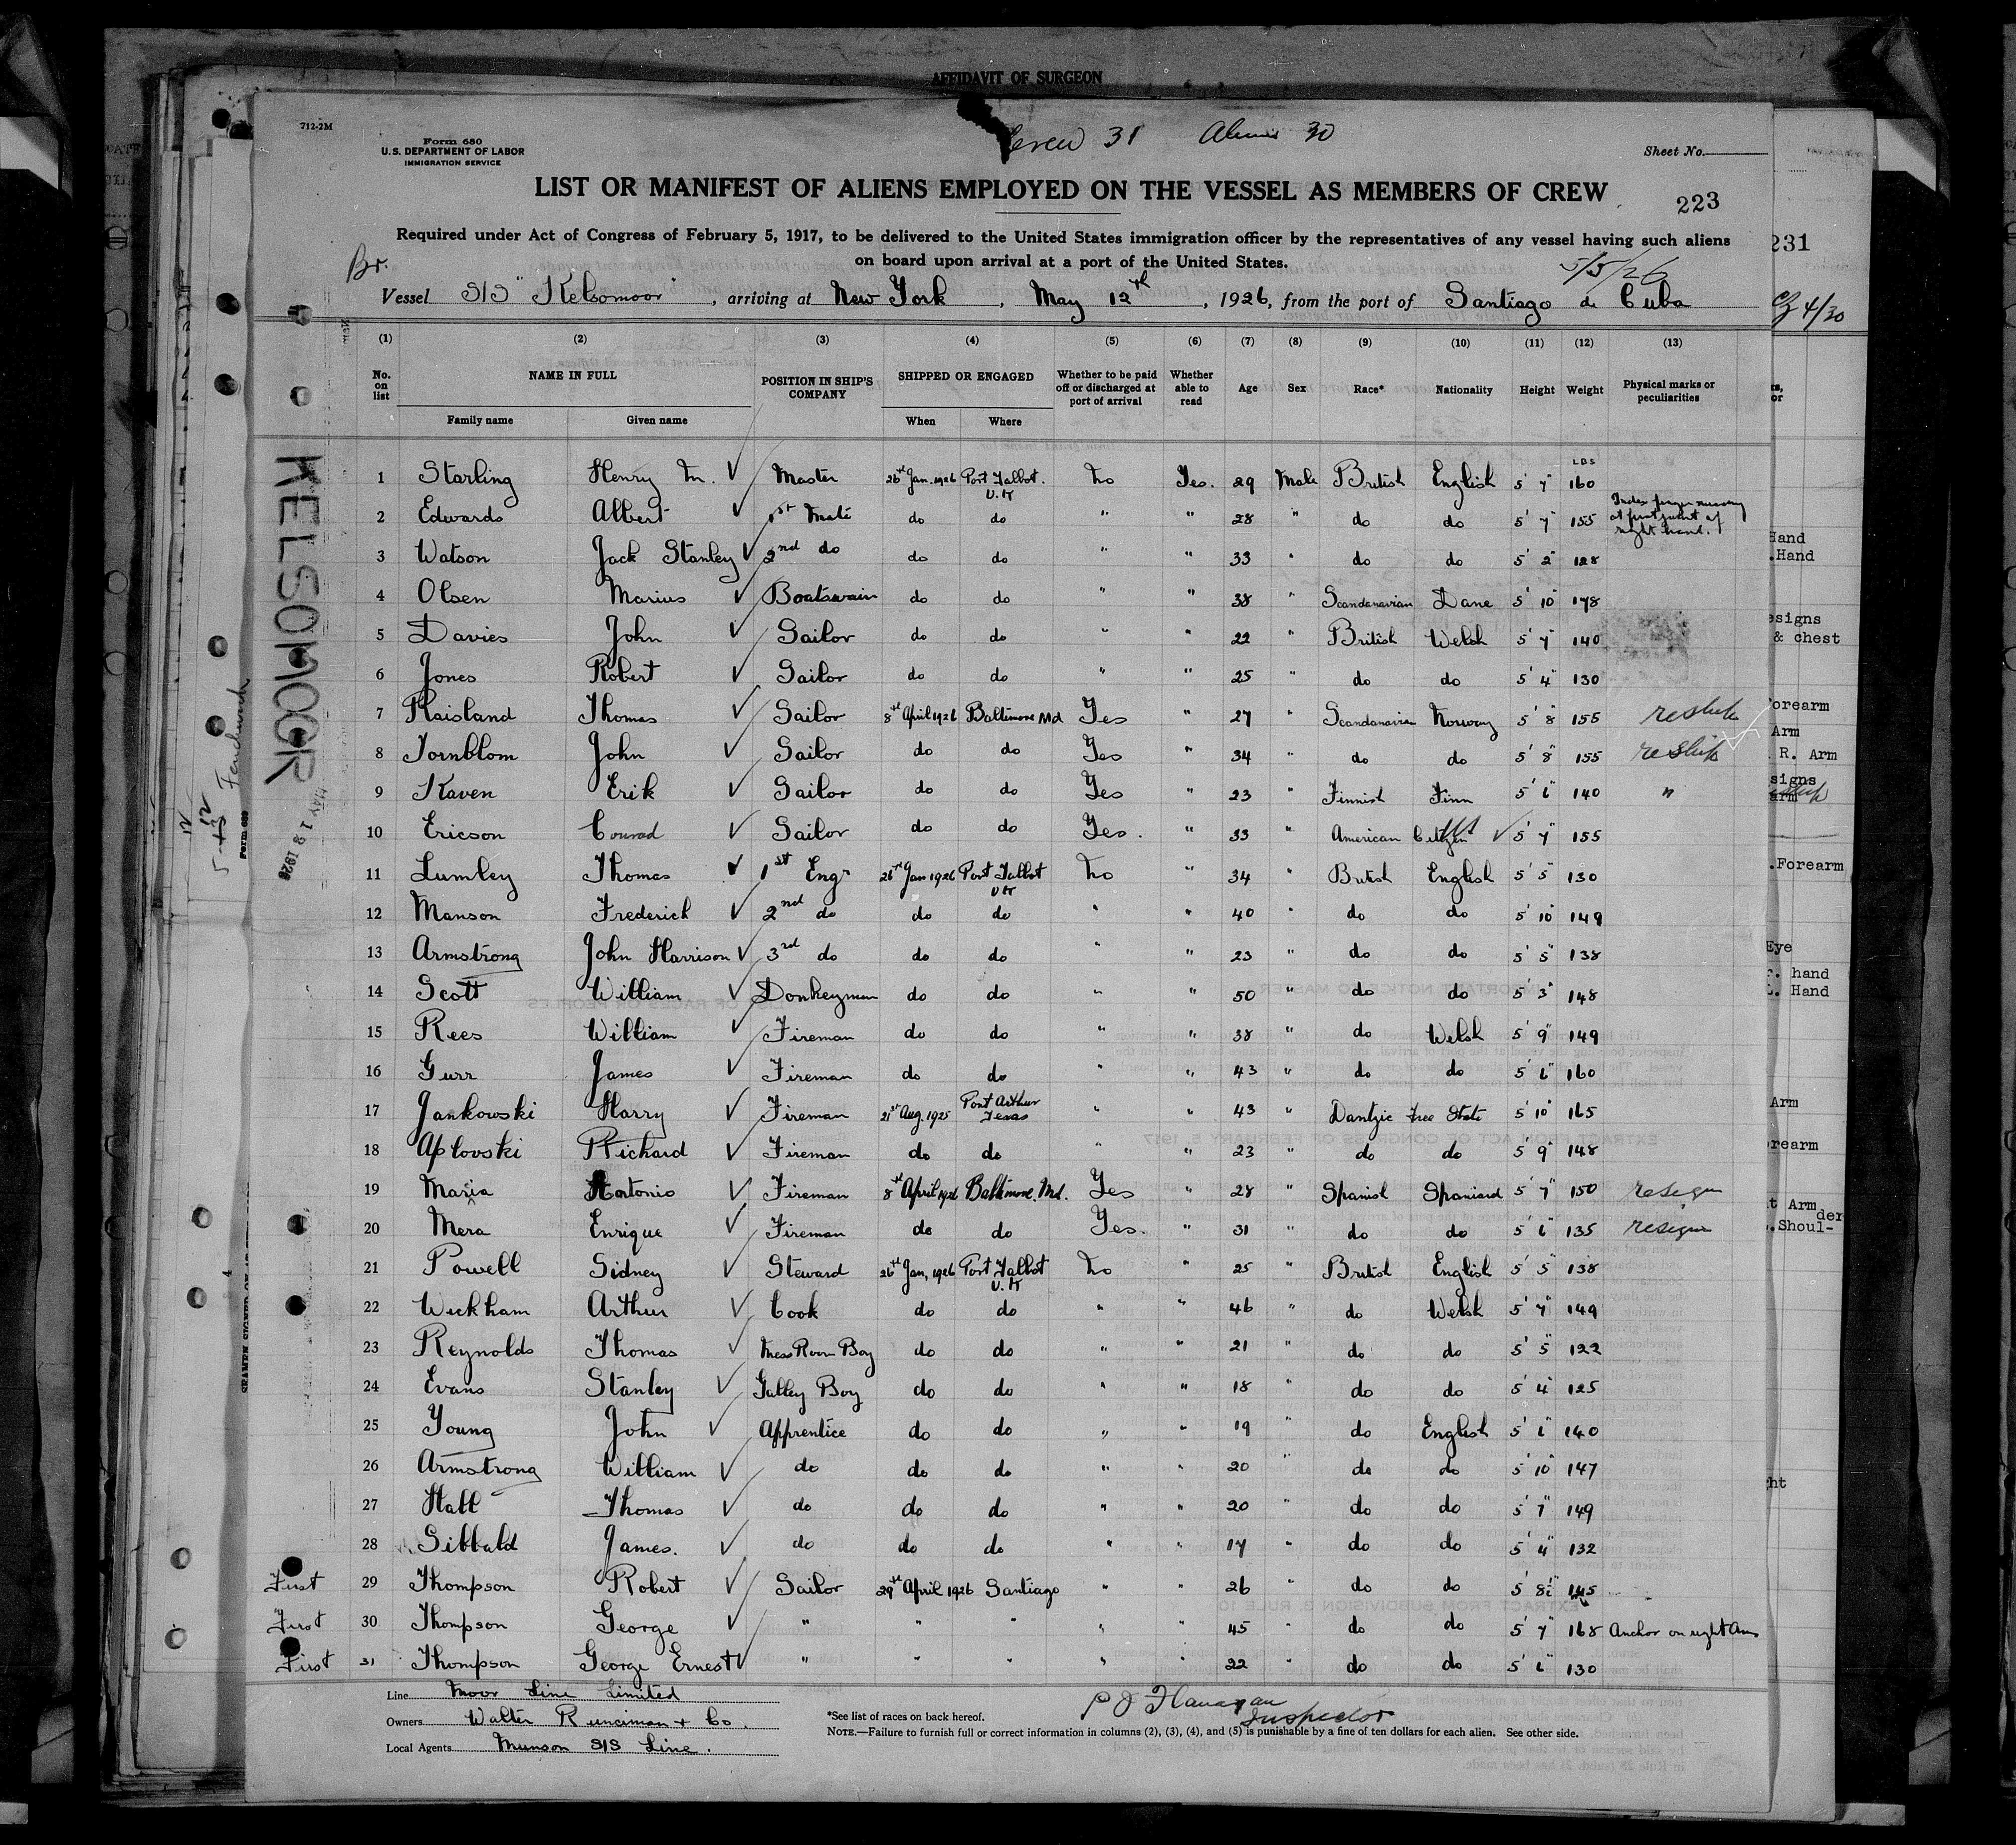 AFFIDAVIT OF SURGEON
712-2M
Form 680
U.S. DEPARTMENT OF LABOR
IMMIGRATION SERVICE
Crew 31 Aliens 30
Sheet No.
LIST OR MANIFEST OF ALIENS EMPLOYED ON THE VESSEL AS MEMBERS OF CREW
223
Required under Act of Congress of February 5, 1917, to be delivered to the United States immigration officer by the representatives of any vessel having such aliens
on board upon arrival at a port of the United States.
231
Br.
5/5/26
Vessel S/S "Kelsomoor", arriving at New York, May 12th, 1926, from the port of Santiago de Cuba
4/30
(1) (2) (3) (4) (5) (6) (7) (8) (9) (10) (11) (12) (13)
No. on list NAME IN FULL POSITION IN SHIP'S COMPANY SHIPPED OR ENGAGED Whether to be paid off or discharged at port of arrival Whether able to read Age Sex Race* Nationality Height Weight Physical marks or peculiarities
Family name Given name When Where
KELSOMOOR
MAY 13 1926
LBS
1 Starling Henry M. ✓ Master 26th Jan. 1926 Port Talbot. U.K No Yes. 29 Male British English 5' 7" 160
2 Edwards Albert ✓ 1st Mate do do " " 28 " do do 5' 7" 155 Index finger missing at first joint of right hand.
3 Watson Jack Stanley ✓ 2nd do do do " " 33 " do do 5' 2" 128
4 Olsen Marius ✓ Boatswain do do " " 38 " Scandanavian Dane 5' 10" 178
5 Davies John ✓ Sailor do do " " 22 " British Welsh 5' 7" 140
6 Jones Robert ✓ Sailor do do " " 25 " do do 5' 4" 130
7 Raisland Thomas ✓ Sailor 8th April 1926 Baltimore Md Yes " 27 " Scandanavian Norway 5' 8" 155 reship
8 Tornblom John ✓ Sailor do do Yes " 34 " do do 5' 8" 155 reship
9 Kaven Erik ✓ Sailor do do Yes " 23 " Finnish Finn 5' 6" 140 "
10 Ericson Conrad ✓ Sailor do do Yes. " 33 " American Citizen ✓ 5' 7" 155
11 Lumley Thomas ✓ 1st Engr 26th Jan 1926 Port Talbot UK No " 34 " British English 5' 5" 130
12 Manson Frederick ✓ 2nd do do do " " 40 " do do 5' 10" 149
13 Armstrong John Harrison ✓ 3rd do do do " " 23 " do do 5' 5" 138
14 Scott William ✓ Donkeyman do do " " 50 " do do 5' 3" 148
15 Rees William ✓ Fireman do do " " 38 " do Welsh 5' 9" 149
16 Gurr James ✓ Fireman do do " " 43 " do do 5' 6" 160
17 Jankowski Harry ✓ Fireman 21st Aug. 1925 Port Arthur Texas " " 43 " Dantzic Free State 5' 10" 165
18 Aplovski Richard ✓ Fireman do do " " 23 " do do 5' 9" 148
19 Maria Antonio ✓ Fireman 8th April 1926 Baltimore. Md. Yes " 28 " Spanish Spaniard 5' 7" 150 resign
20 Mera Enrique ✓ Fireman do do Yes. " 31 " do do 5' 6" 135 resign
21 Powell Sidney ✓ Steward 26th Jan, 1926 Port Talbot U.K No " 25 " British English 5' 5" 138
22 Wickham Arthur ✓ Cook do do " " 46 " do Welsh 5' 7" 149
23 Reynolds Thomas ✓ Mess Room Boy do do " " 21 " do do 5' 5" 122
24 Evans Stanley ✓ Galley Boy do do " " 18 " do do 5' 4" 125
25 Young John ✓ Apprentice do do " " 19 " do English 5' 6" 140
26 Armstrong William ✓ do do do " " 20 " do do 5' 10" 147
27 Hall Thomas ✓ do do do " " 20 " do do 5' 7" 149
28 Sibbald James. ✓ do do do " " 17 " do do 5' 4" 132
First 29 Thompson Robert ✓ Sailor 29th April 1926 Santiago " " 26 " do do 5' 8½" 145
First 30 Thompson George ✓ " " " " " 45 " do do 5' 7" 168 Anchor on right Arm
First 31 Thompson George Ernest ✓ " " " " " 22 " do do 5' 6" 130
Line Moor Line Limited
Owners Walter Runciman & Co.
Local Agents Munson S/S Line.
*See list of races on back hereof.
P J Flanagan
Inspector
NOTE.—Failure to furnish full or correct information in columns (2), (3), (4), and (5) is punishable by a fine of ten dollars for each alien. See other side.
Hand
.Hand
esigns
& chest
orearm
Arm
R. Arm
signs
arm
.Forearm
Eye
r. hand
L. Hand
Arm
rearm
t Arm
der
.Shoul-
ht
Form 689